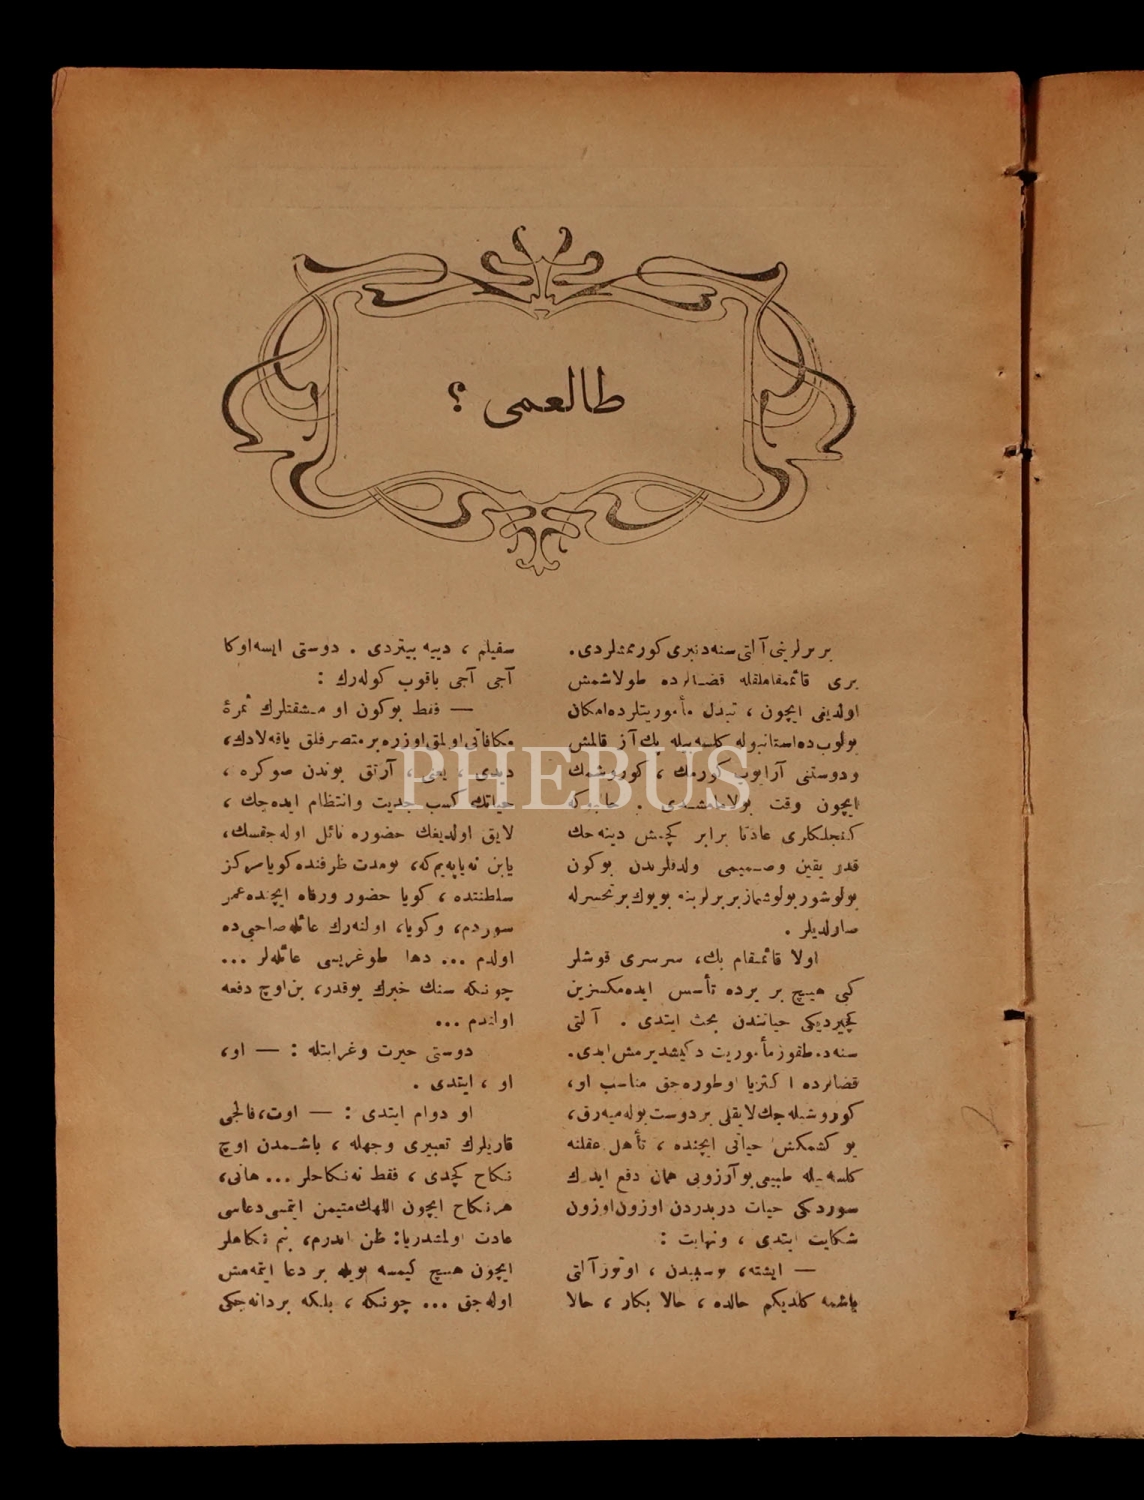 طالعمی ؟
بر برلرینی آلتی سنه‌دنبری کورمه‌مشلردی.
بری قائممقاملقله قضالرده طولاشمش
اولدیغی ایچون ، تبدل مأموریتلرده امکان
بولوب‌ده استانبوله کلسه بیله پك آز قالمش
ودوستنی آرایوب کورمك ، کوروشمك
ایچون وقت بولامامشدی . حالبوکه
کنجلکلری عادتا برابر کچمش دینه‌جك
قدر یقین وصمیمی ایدیلر
بولوشور بولوشماز بربرلرینه بویوك بر تحسرله
صارلدیلر .
اولا قائممقام بك، سرسری قوشلر
کبی هیچ بر یرده تأسس ایده‌مکسزین
کچیردیکی حیاتندن بحث ایتدی . آلتی
سنه‌ده طقوز مأموریت دکیشدیرمش ایدی.
قضالرده اکثریا اوطوره‌جق مناسب او،
کوروشیله‌جك لایقلی بر دوست بوله‌میه‌رق،
بو کشمکش حیاتی ایچنده ، تأهل عقلنه
کلسه بیله طبیعی بو آرزویی همان دفع ایده‌رك
سوردیکی حیات دربدردن اوزون اوزون
شکایت ایتدی ، ونهایت :
— ایشته، بوسببدن ، اوتوز آلتی
یاشمه کلدیکم حالده ، حالا بکار ، حالا
سفیلم ، دییه بیتردی . دوستی ایسه اوکا
آجی آجی باقوب کوله‌رك :
— فقط بوکون او مشقتلرك ثمرهٔ
مکافاتی اولمق اوزره بر متصرفلق یاقه‌لادك،
دیدی ، یعنی ، آرتق بوندن صوکره ،
حیاتك کسب جدیت وانتظام ایده‌جك ،
لایق اولدیغك حضوره نائل اوله‌جقسك،
یا بن نه یاپه‌یم که، بومدت ظرفنده کویا مرکز
سلطنتده ، کویا حضور ورفاه ایچنده عمر
سوردم، وکویا، اولنه‌رك عائله صاحبی ده
اولدم ... دها طوغریسی عائله‌لر ...
چونکه سنك خبرك یوقدر، بن اوچ دفعه
اولندم ...
دوستی حیرت وغرابتله : — او،
او ، ایتدی .
او دوام ایتدی : — اوت، فالجی
قاریلرك تعبیری وجهله ، باشمدن اوچ
نکاح کچدی ، فقط نه نکاحلر ... هانی،
هر نکاح ایچون اللهك متیمن ایتمسی دعاسی
عادت اولمشدر یا: ظن ایدرم، بنم نکاحلر
ایچون هیچ کیمسه بویله بر دعا ایتمه‌مش
اوله‌جق ... چونکه ، بلکه بر دانه‌جکی
PHEBUS